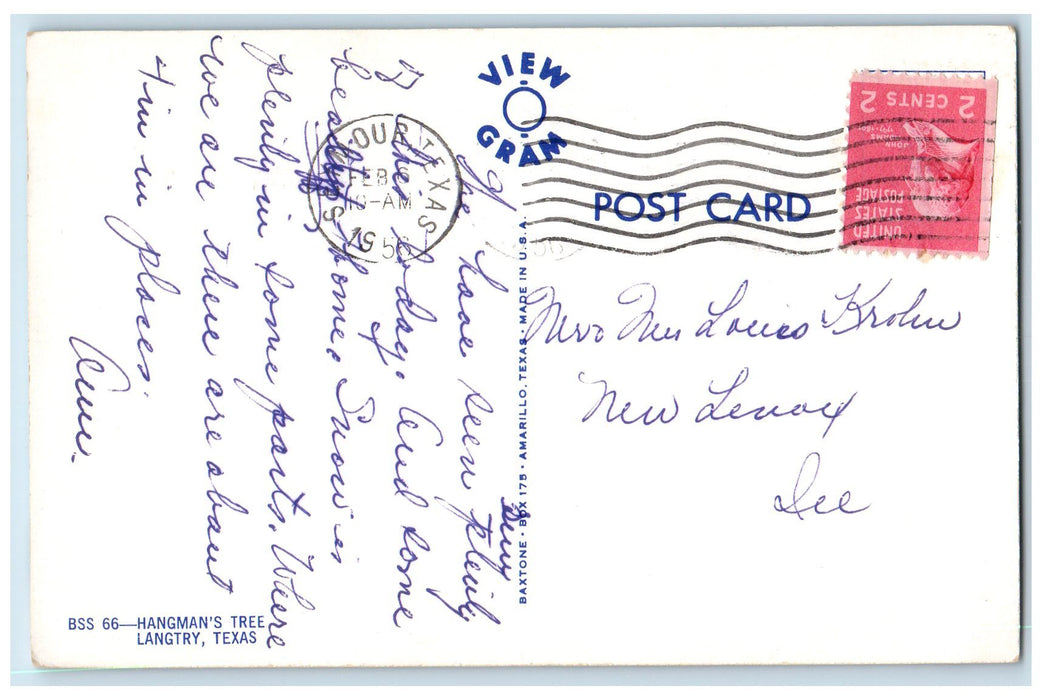 VIEW
GRAM
POST CARD
2 CENTS 2
JOHN
ADAMS
UNITED
STATES
POSTAGE
SEYMOUR TEXAS
FEB
10-AM
1956
We have seen plenty
of this today. And some
at home. Snow is
plenty in some parts. Where
we are there are about
4 in in places.
Mr & Mrs Louis Krohn
New Lenox
Ill
BAXTONE • BOX 175 • AMARILLO, TEXAS • MADE IN U.S.A.
BSS 66—HANGMAN'S TREE
LANGTRY, TEXAS